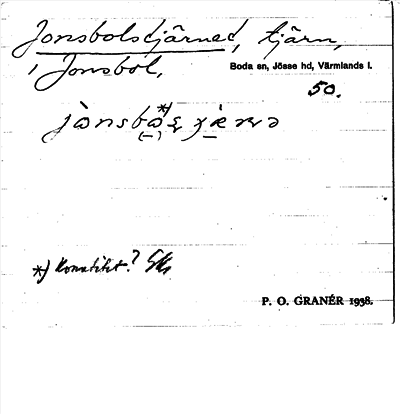 Jonsbolstjärnet, tjärn,
i Jonsbol,
Boda sn, Jösse hd, Värmlands l.
50.
*) Konstitit.?
P. O. GRANÉR 1938.